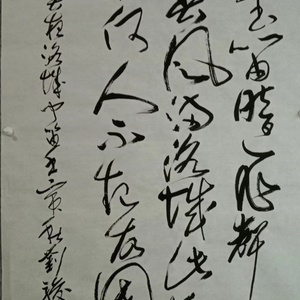 玉笛暗飞聲
春风满洛城此
何人不起故园
春夜洛城闻笛壬寅秋刘